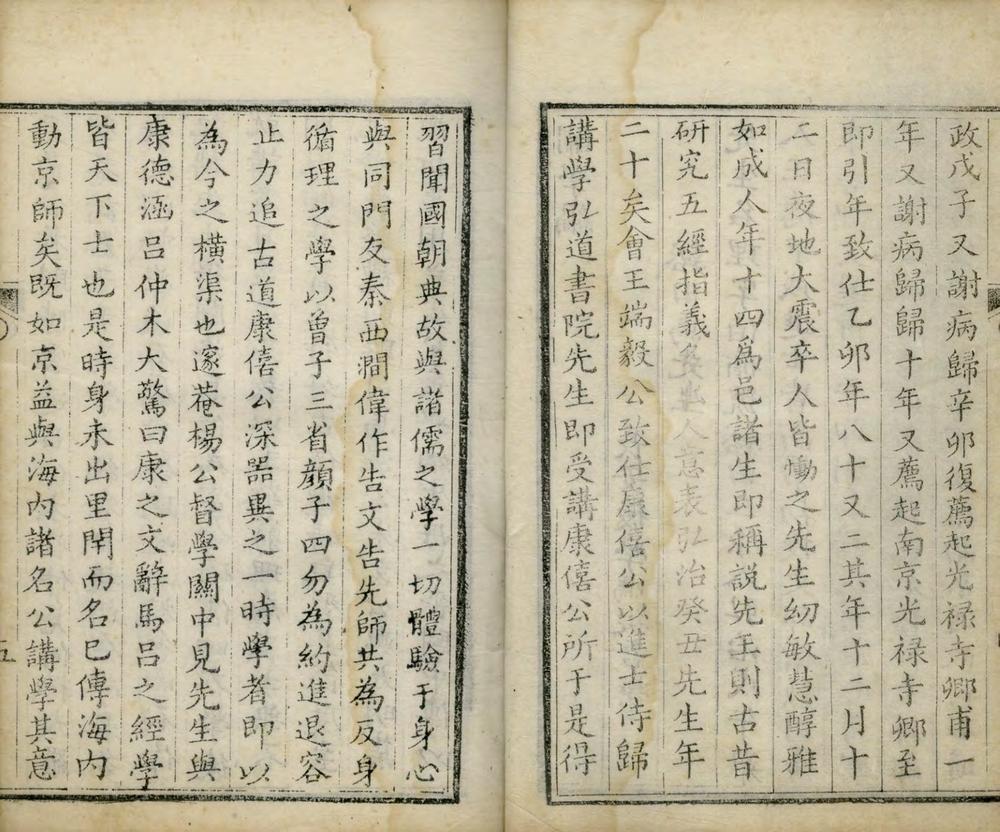 政戊子又謝病歸辛卯復薦起光禄寺卿甫一
年又謝病歸歸十年又薦起南京光禄寺卿至
即引年致仕乙卯年八十又二其年十二月十
二日夜地大震卒人皆慟之先生幼敏慧醇雅
如成人年十四爲邑諸生即稱說先王則古昔
研究五經指義多出人意表弘治癸丑先生年
二十矣會王端毅公致仕康僖公以進士侍歸
講學弘道書院先生即受講康僖公所于是得
習聞國朝典故與諸儒之學一切體驗于身心
與同門友秦西澗偉作告文告先師共為反身
循理之學以曾子三省顔子四勿為約進退容
止力追古道康僖公深器異之一時學者即以
為今之橫渠也邃菴楊公督學關中見先生與
康德涵呂仲木大驚曰康之文辭馬呂之經學
皆天下士也是時身未出里閈而名已傳海内
動京師矣既如京益與海内諸名公講學其意
五